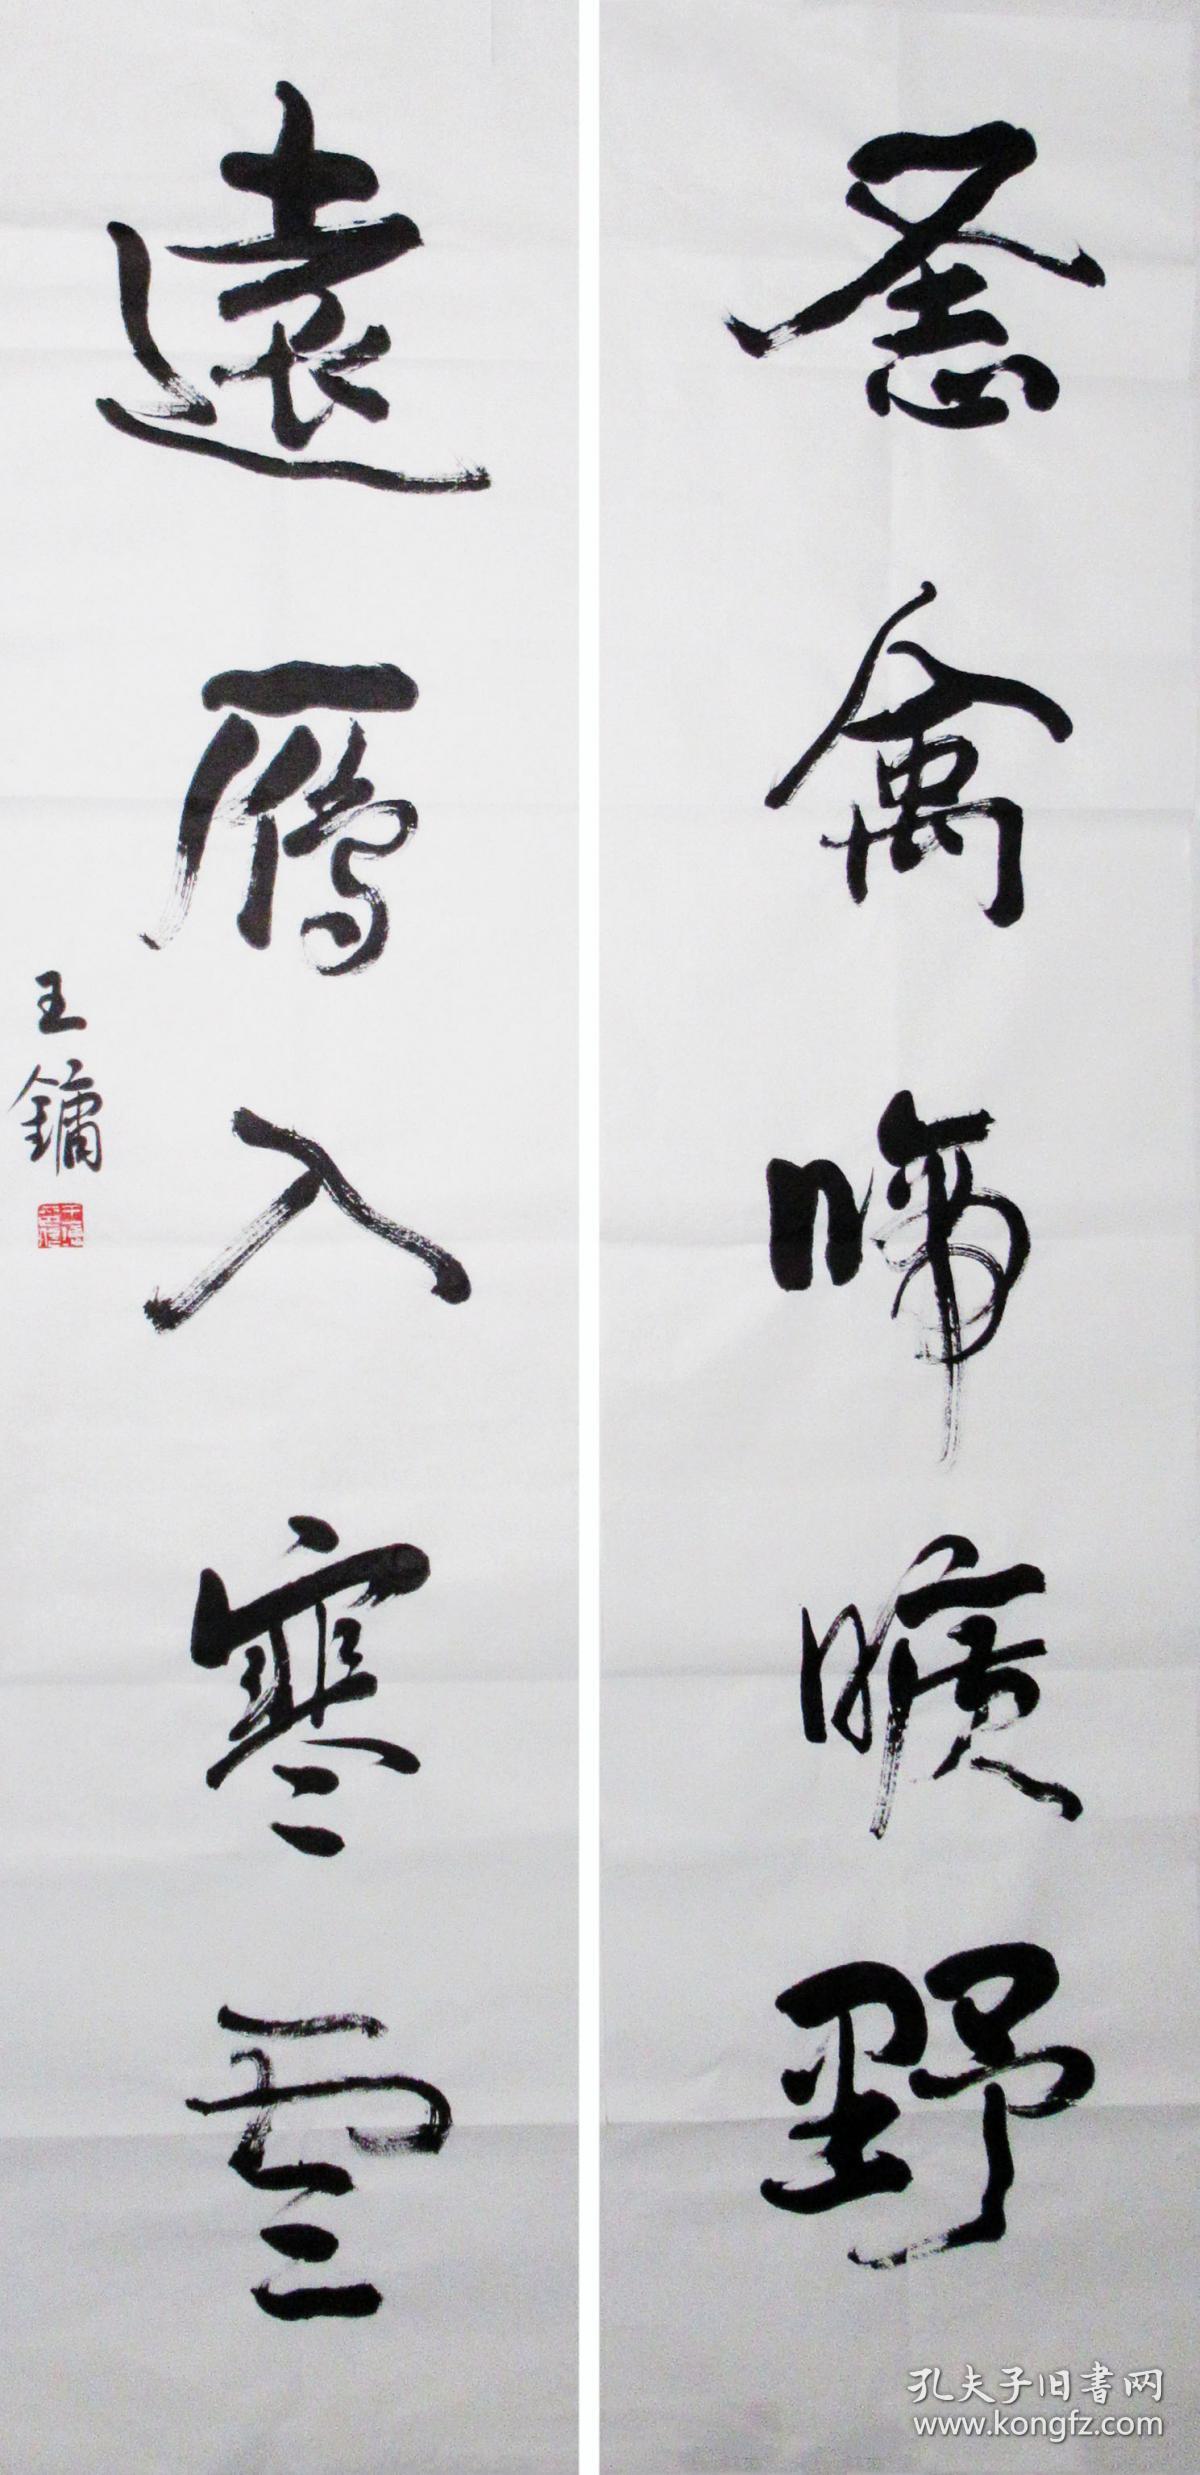 怪禽啼曠野
遠雁入寒雲
王鏞
孔夫子旧書网
www.kongfz.com